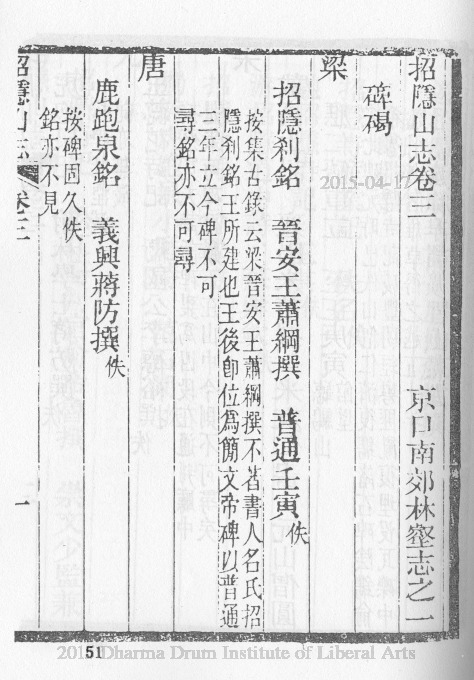 招隱山志卷三 京口南郊林壑志之一
碑碣
梁
招隱刹銘 晉安王蕭綱撰 普通壬寅 佚
按集古錄云梁晉安王蕭綱撰不著書人名氏招
隱刹銘王所建也王後卽位為簡文帝碑以普通
三年立今碑不可
尋銘亦不可尋
唐
鹿跑泉銘 義興蔣防撰 佚
按碑固久佚
銘亦不見
招隱山志 卷三 一
51
2015-04-17
Dharma Drum Institute of Liberal Arts